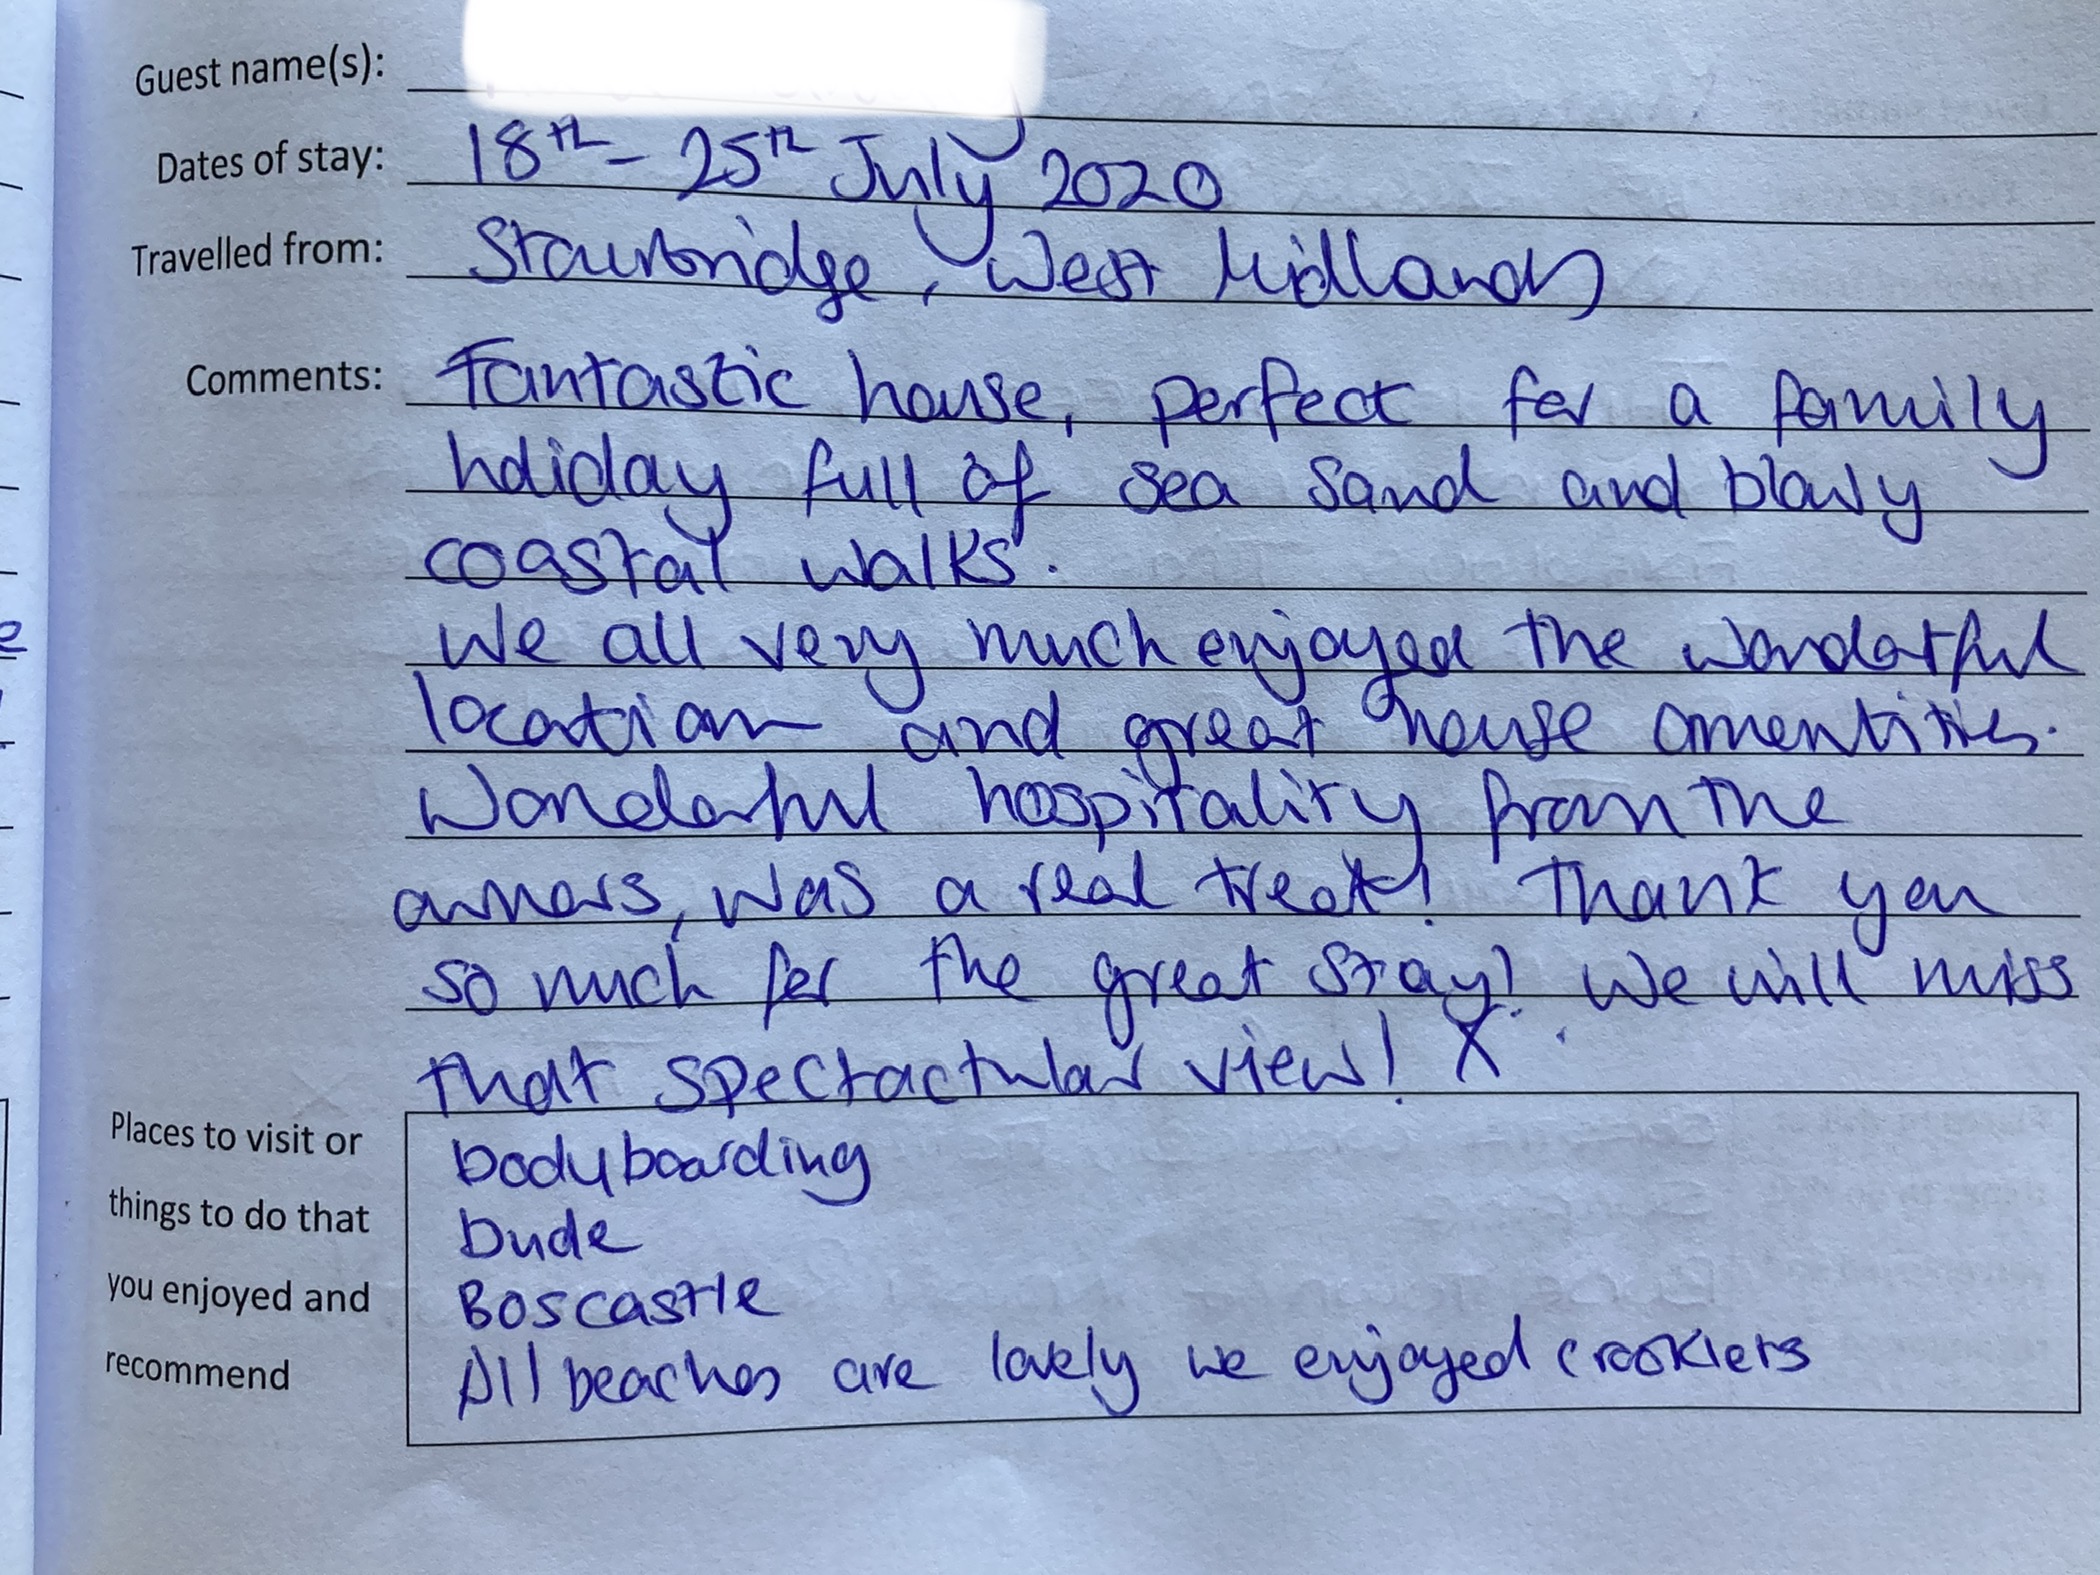 Guest name(s):
Dates of stay: 18th - 25th July 2020
Travelled from: Stourbridge, West Midlands
Comments: Fantastic house, perfect for a family
holiday full of sea sand and blowy
coastal walks.
We all very much enjoyed the wonderful
location and great house amentities.
Wonderful hospitality from the
owners, was a real treat! Thank you
so much for the great stay! We will miss
that spectactular view! X
Places to visit or
things to do that
you enjoyed and
recommend
bodyboarding
Bude
Boscastle
All beaches are lovely we enjoyed crooklets